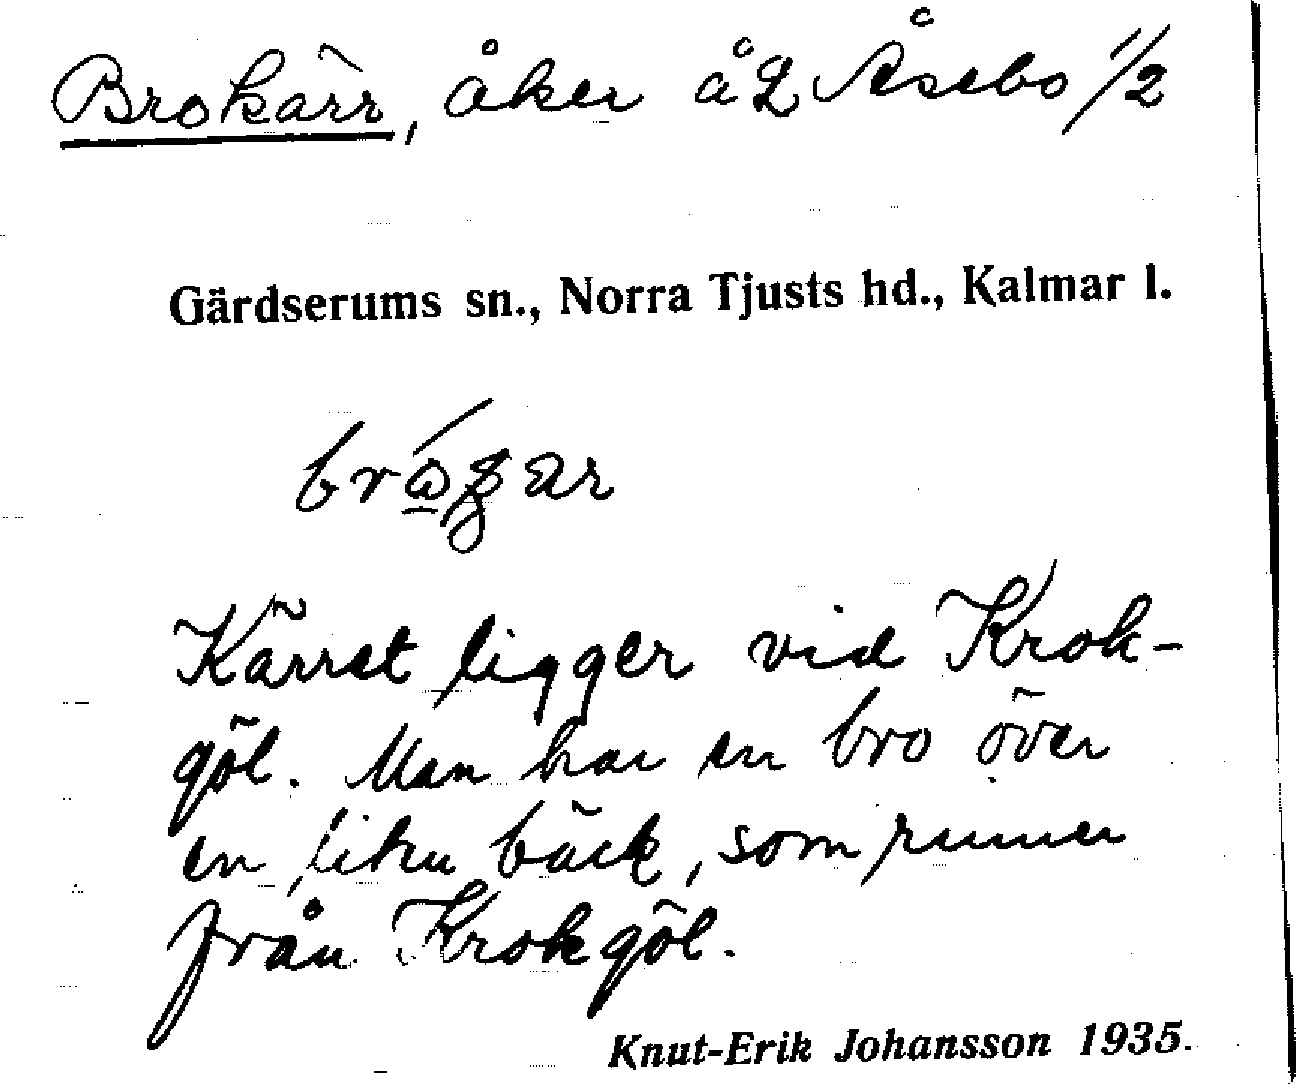 Brokärr, åker å L Åsebo 1/2
Gärdserums sn., Norra Tjusts hd., Kalmar l.
Kärret ligger vid Krok-
göl. Man har en bro över
en liten bäck, som rinner
från Krokgöl.
Knut-Erik Johansson 1935.